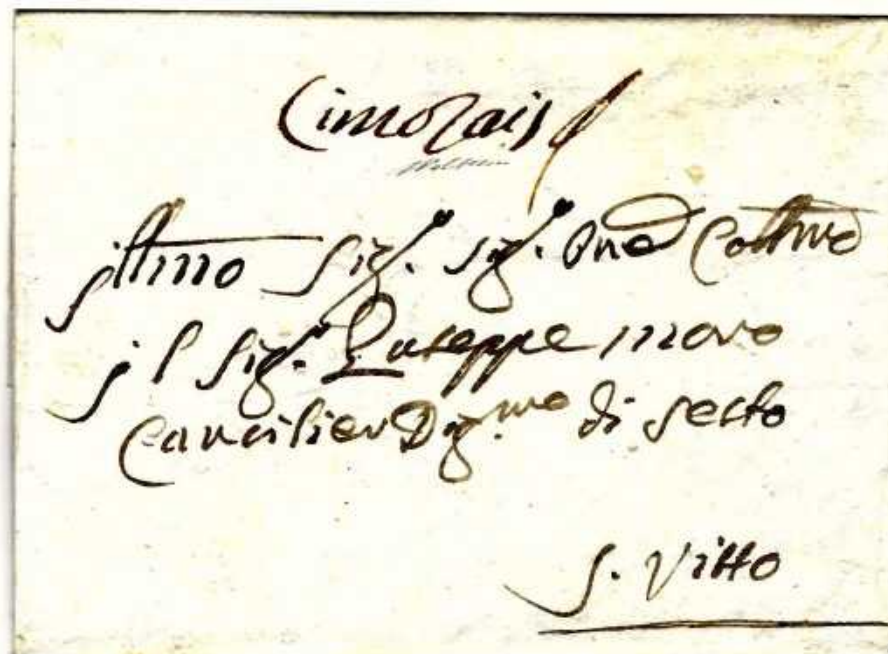 Cimolais
jllmo Sig.r Sig.r One Collmo
jl Sig.r Giuseppe moro
Cancilier Dig.mo di sesto
S. Vitto